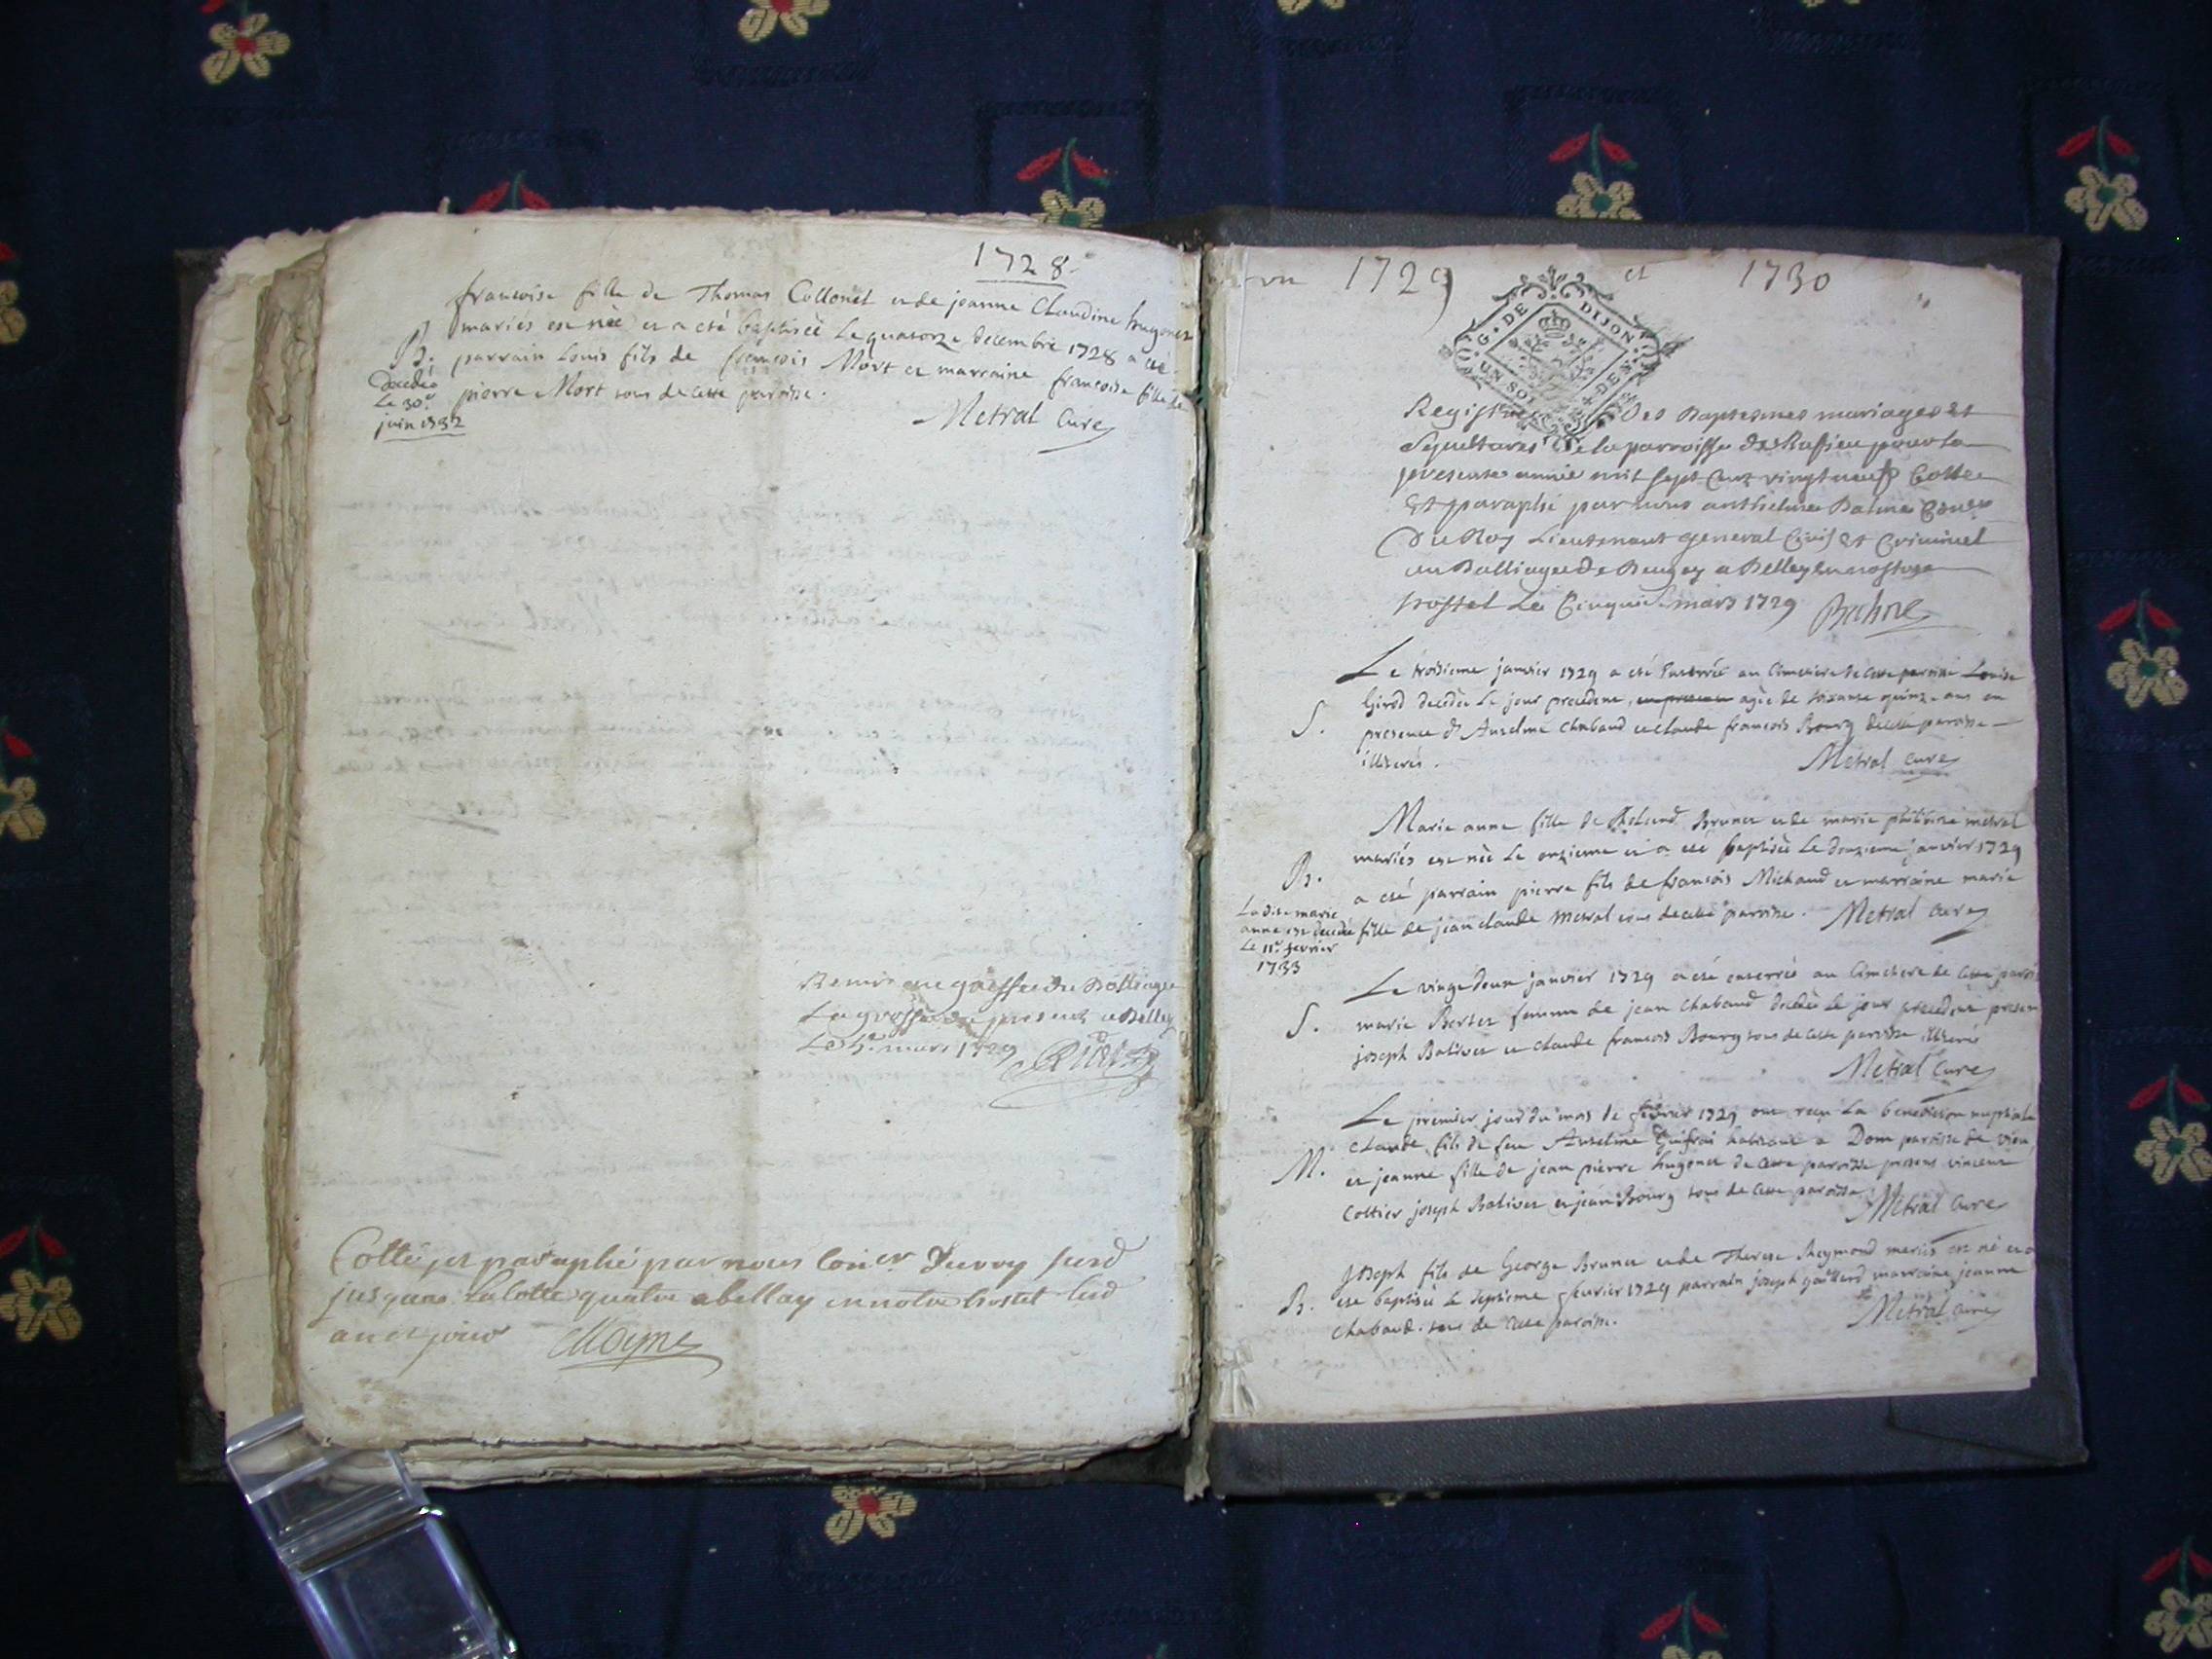 1728
francoise fille de Thomas Collonet et de jeanne Claudine hugonet
mariés est née et a eté baptisée Le quatorze decembre 1728 a eté
B. parrain Louis fils de francois Mort et marraine francoise fille de
pierre Mort tous de cette paroisse.
Metral Curé
Decedé
Le 30e
juin 1732
Remis au greffe du Balliage
La grosse du present a Belley
Le 5e mars 1729
Cotté et paraphé par nous Coner Du roy susd
jusques La cotte quatre a bellay en notre hostel lesd
an et jour Moyne
1729 et 1730
G. DE DIJON
UN SOL 4 DES
Registre Des Baptesmes mariages et
Sepultures De la parroisse de Ruffieu pour la
presente année mil sept Cent vingt neuf Cotté
Et paraphé par nous anthelme Balme Coner
Du Roy Lieutenant general Civil et Criminel
au Balliage de Beugey a Belley en nostre
hostel Le Cinquie mars 1729 Balme
Le troisieme janvier 1729 a eté Enterrée au Cimetiere de cette paroisse Louise
Girod decedée Le jour precedent, en presence agée de soixante quinze ans en
S. presence d'Anselme Chabaud et claude francois Bourg de cette paroisse
illiterés.
Metral curé
Marie anne fille de Brunet et de marie philibine metral
mariés est née Le onzieme et a eté baptisée Le douzieme janvier 1729
B. a eté parrain pierre fils de francois Michaud et marraine marie
fille de jean claude Metral tous de cette paroisse. Metral Curé
La dite marie
anne est decedée
Le 11e fevrier
1733
Le vingt deux janvier 1729 a eté enterrée au Cimetiere de cette paroisse
S. marie Bertet femme de jean Chabaud decedée le jour precedent presens
joseph Balivet et claude francois Bourg tous de cette paroisse illiterés
Metral Curé
Le premier jour du mois de fevrier 1729 ont reçu La benediction nuptiale
Claude fils de feu Anselme Guifrai habitant a Dom paroisse de vieu
M. et jeanne fille de jean pierre hugonet de cette paroisse presens vincent
Cottier joseph Balivet et jean Bourg tous de cette paroisse. Metral Curé
Joseph fils de George Brunet et de Therese Reymond mariés est né et a
B. eté baptisé le septieme fevrier 1729 parrain joseph gaillard marraine jeanne
Chabaud. tous de cette paroisse.
Metral Curé